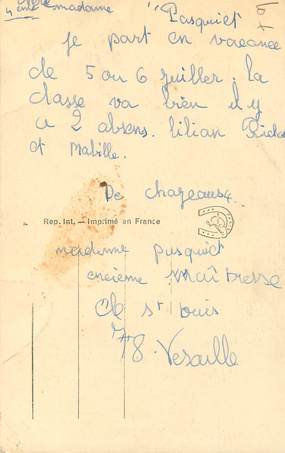 4 ème madame "Pasquiet
Je part en vacance
de 5 ou 6 juiller. la
classe va bien il y
a 2 absens. lilian Richa
et Mabille.
De chazeausc
Rep. Int. — Imprimé en France
merdamme pasquiet
encieme maîtresse
Cle st ouis
78. Vesaille